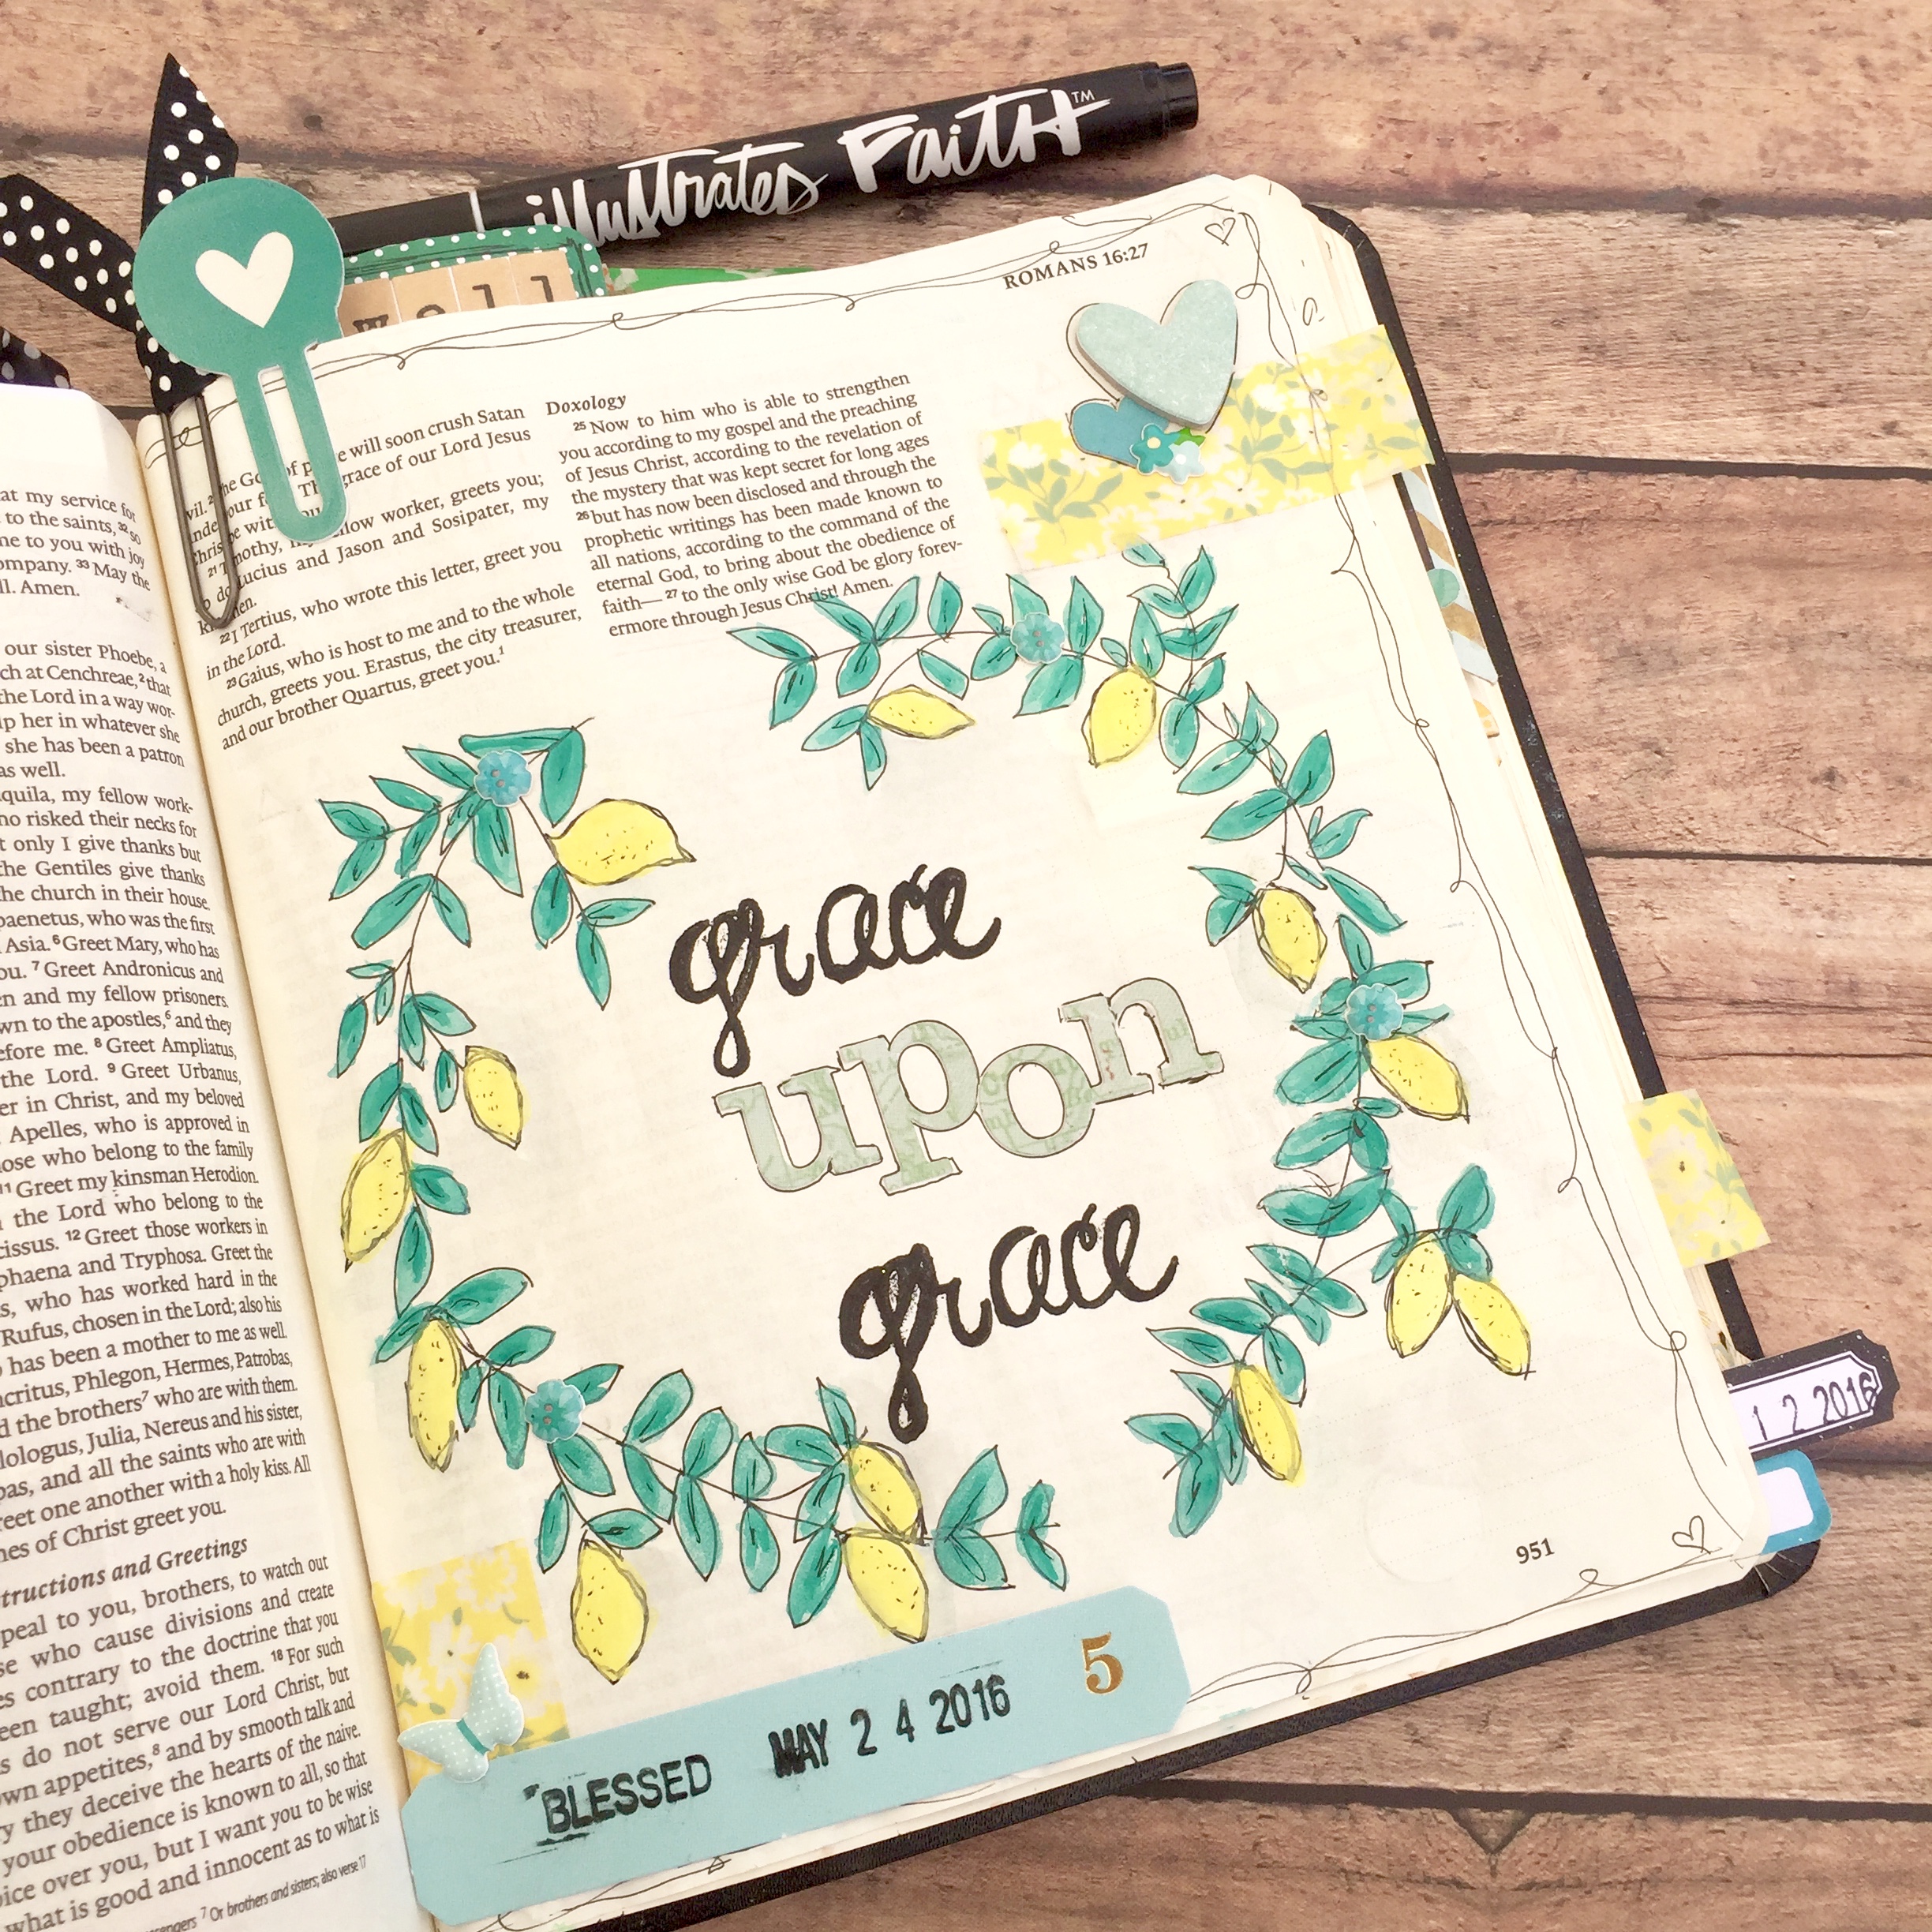 illustrates Faith™
well
ROMANS 16:27
at my service for
to the saints, 32 so
me to you with joy
ompany. 33 May the
ll. Amen.
our sister Phoebe, a
ch at Cenchreae, 2 that
the Lord in a way wor-
lp her in whatever she
she has been a patron
as well.
quila, my fellow work-
ho risked their necks for
t only I give thanks but
the Gentiles give thanks
the church in their house.
paenetus, who was the first
Asia. 6 Greet Mary, who has
ou. 7 Greet Andronicus and
en and my fellow prisoners.
wn to the apostles,6 and they
efore me. 8 Greet Ampliatus,
the Lord. 9 Greet Urbanus,
er in Christ, and my beloved
Apelles, who is approved in
ose who belong to the family
11 Greet my kinsman Herodion.
the Lord who belong to the
cissus. 12 Greet those workers in
phaena and Tryphosa. Greet the
s, who has worked hard in the
Rufus, chosen in the Lord; also his
has been a mother to me as well.
ncritus, Phlegon, Hermes, Patrobas,
d the brothers7 who are with them.
ilologus, Julia, Nereus and his sister,
pas, and all the saints who are with
reet one another with a holy kiss. All
hes of Christ greet you.
structions and Greetings
peal to you, brothers, to watch out
se who cause divisions and create
es contrary to the doctrine that you
een taught; avoid them. 18 For such
s do not serve our Lord Christ, but
own appetites,8 and by smooth talk and
y they deceive the hearts of the naive.
your obedience is known to all, so that
oice over you, but I want you to be wise
what is good and innocent as to what is
ssengers 7 Or brothers and sisters; also verse 17
e will soon crush Satan
grace of our Lord Jesus
low worker, greets you;
Lucius and Jason and Sosipater, my
22 I Tertius, who wrote this letter, greet you
in the Lord.
23 Gaius, who is host to me and to the whole
church, greets you. Erastus, the city treasurer,
and our brother Quartus, greet you.1
Doxology
25 Now to him who is able to strengthen
you according to my gospel and the preaching
of Jesus Christ, according to the revelation of
the mystery that was kept secret for long ages
26 but has now been disclosed and through the
prophetic writings has been made known to
all nations, according to the command of the
eternal God, to bring about the obedience of
faith— 27 to the only wise God be glory forev-
ermore through Jesus Christ! Amen.
grace
upon
grace
1 2 2016
951
BLESSED MAY 2 4 2016 5